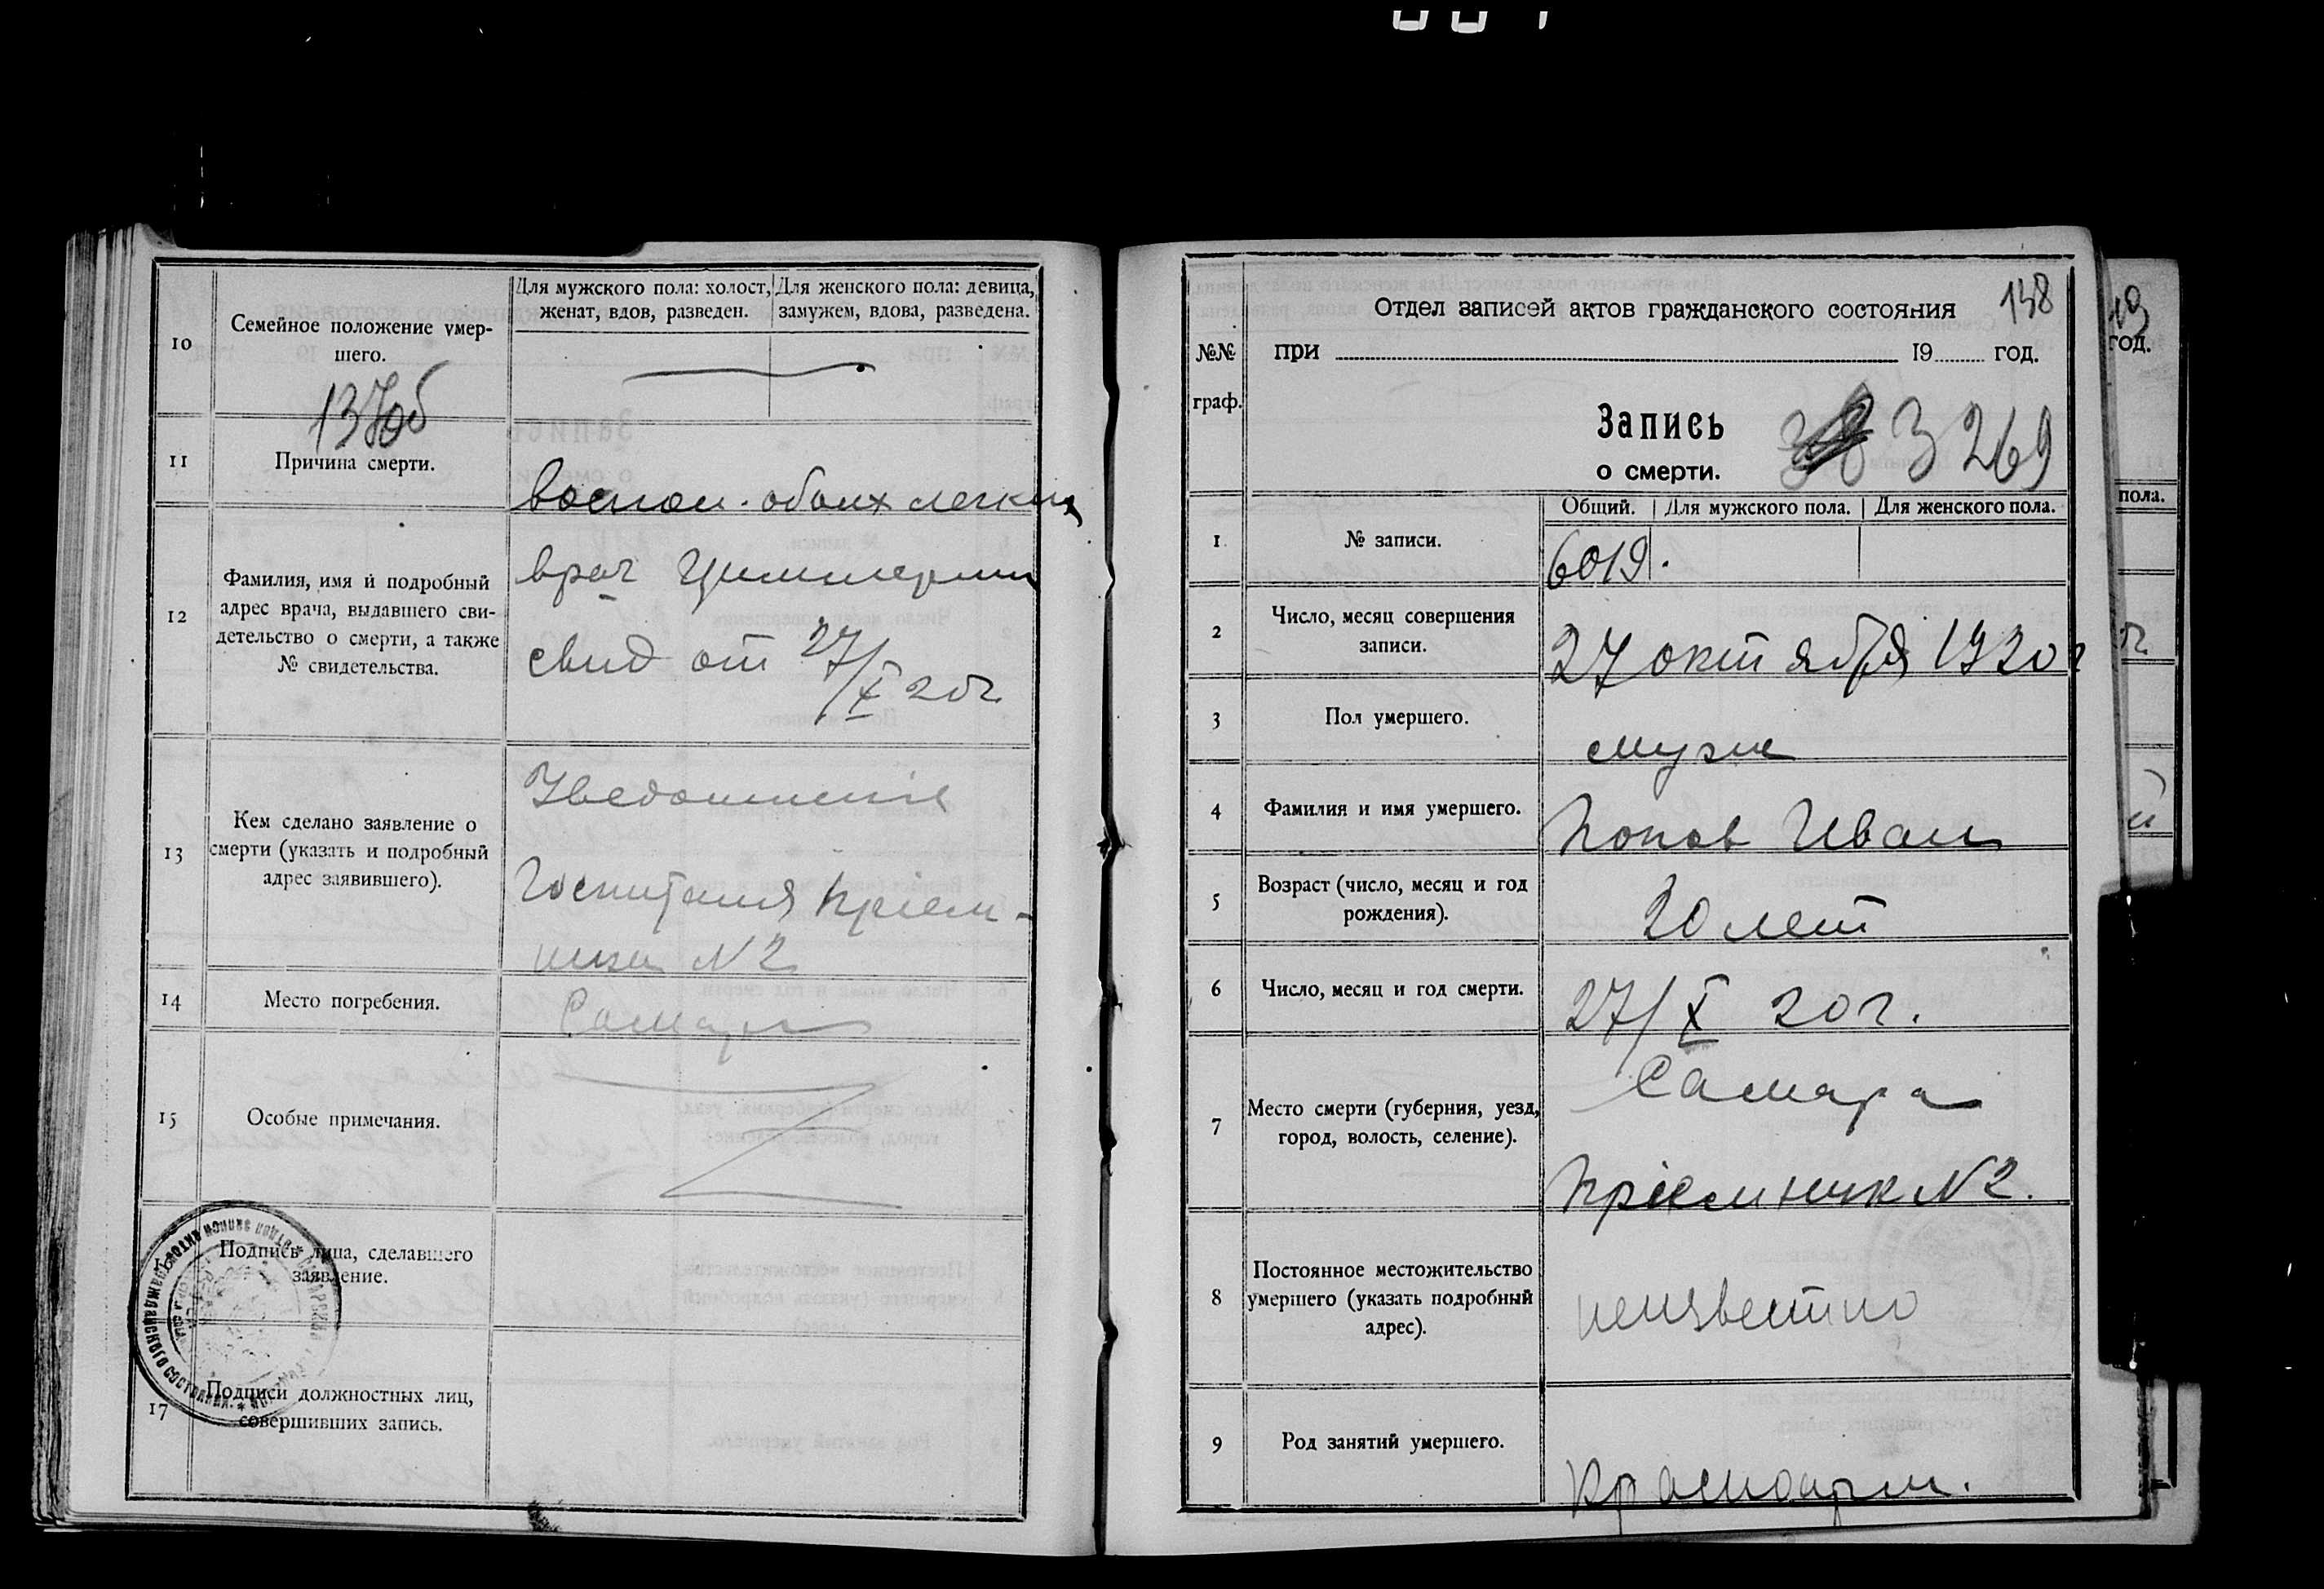 10
Семейное положение умер-
шего.
Для мужского пола: холост,
женат, вдов, разведен.
Для женского пола: девица,
замужем, вдова, разведена.
11
Причина смерти.
воспал. обоих легких
12
Фамилия, имя и подробный
адрес врача, выдавшего сви-
детельство о смерти, а также
№ свидетельства.
врач Циммерман
свид от 27/X 20г
13
Кем сделано заявление о
смерти (указать и подробный
адрес заявившего).
Уведомление
Госпиталя Прием-
ника N2
14
Место погребения.
Самара
15
Особые примечания.
Подпись лица, сделавшего
заявление.
17
Подписи должностных лиц,
совершивших запись.
138
Отдел записей актов гражданского состояния
при 19 год.
№№
граф.
Запись
о смерти.
3269
Общий. Для мужского пола. Для женского пола.
1
№ записи.
6019.
2
Число, месяц совершения
записи.
27 октября 1920г
3
Пол умершего.
муж
4
Фамилия и имя умершего.
Попов Иван
5
Возраст (число, месяц и год
рождения).
20 лет
6
Число, месяц и год смерти.
27/X 20г.
7
Место смерти (губерния, уезд,
город, волость, селение).
Самара
Пріемник N2.
8
Постоянное местожительство
умершего (указать подробный
адрес).
неизвестно
9
Род занятий умершего.
Красноарм.
год.
пола.